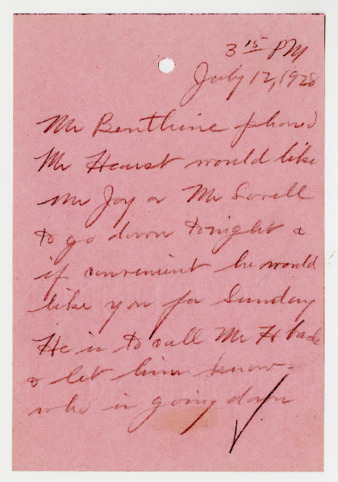 3 15 PM
July 12, 1928
Mr Benthine phoned
Mr Hearst would like
Mr Joy or Mr Sorell
to go down tonight &
if convenient he would
like you for Sunday
He is to call Mr H back
& let him know
who is going down